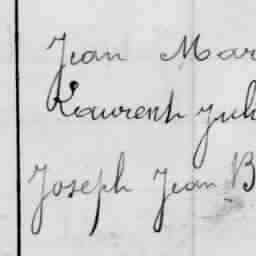 Jean Mar
Laurent Jul
Joseph Jean B